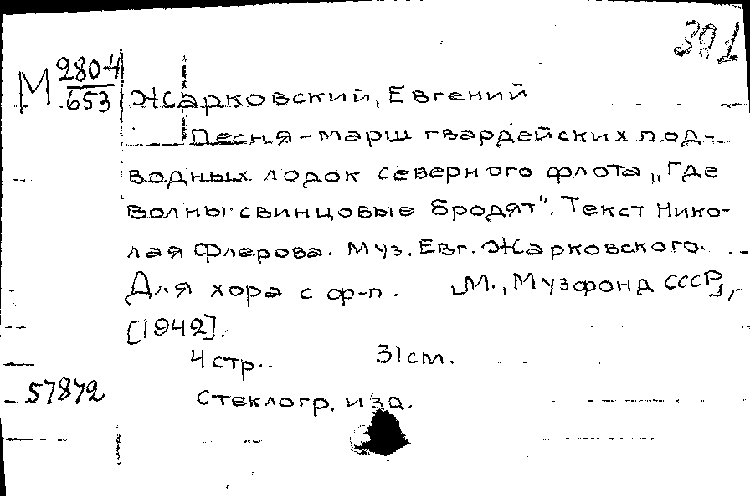 391
М 2804/653
Жарковский, Евгений
Песня-марш гвардейских под-
водных лодок северного флота „Где
волны свинцовые бродят". Текст Нико-
лая Флерова. Муз. Евг. Жарковского.
Для хора с ф-п. М., Музфонд СССР,
[1942].
4 стр. 31 см.
57872
Стеклогр. изд.